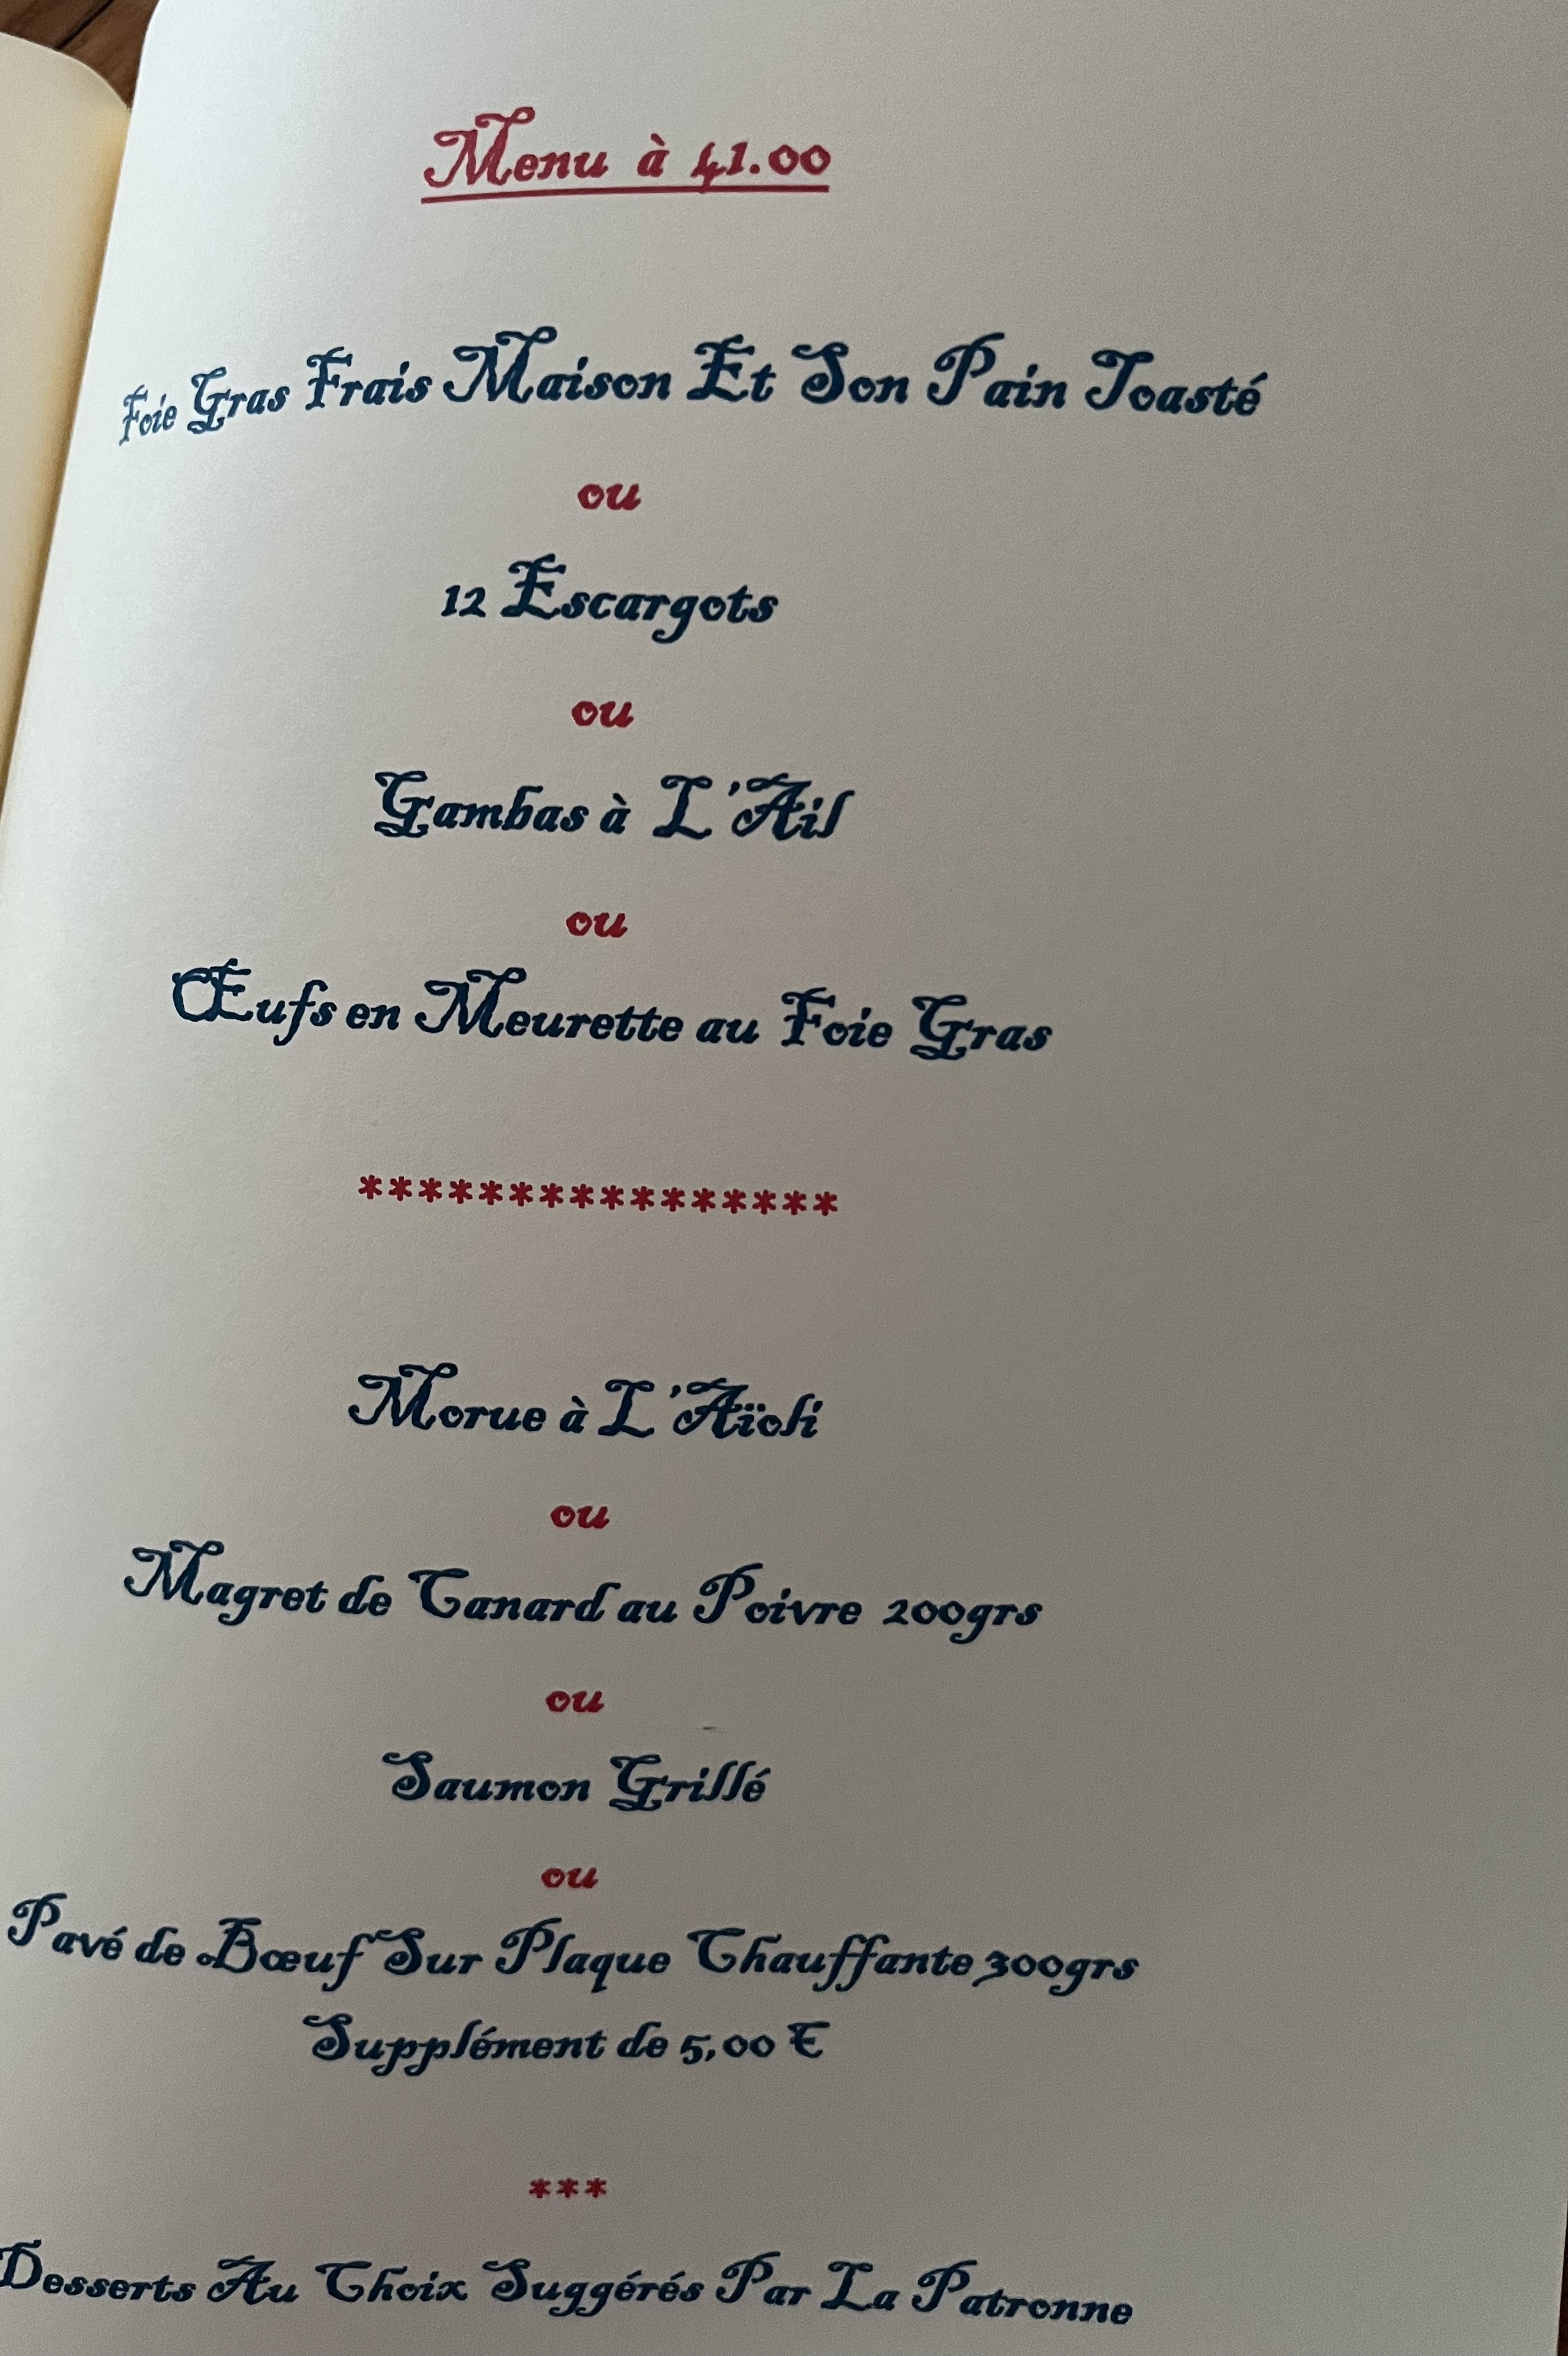 Menu à 41.00
Foie Gras Frais Maison Et Son Pain Toasté
ou
12 Escargots
ou
Gambas à L'Ail
ou
Œufs en Meurette au Foie Gras
****************
Morue à L'Aïoli
ou
Magret de Canard au Poivre 200grs
ou
Saumon Grillé
ou
Pavé de Bœuf Sur Plaque Chauffante 300grs
Supplément de 5,00 €
***
Desserts Au Choix Suggérés Par La Patronne